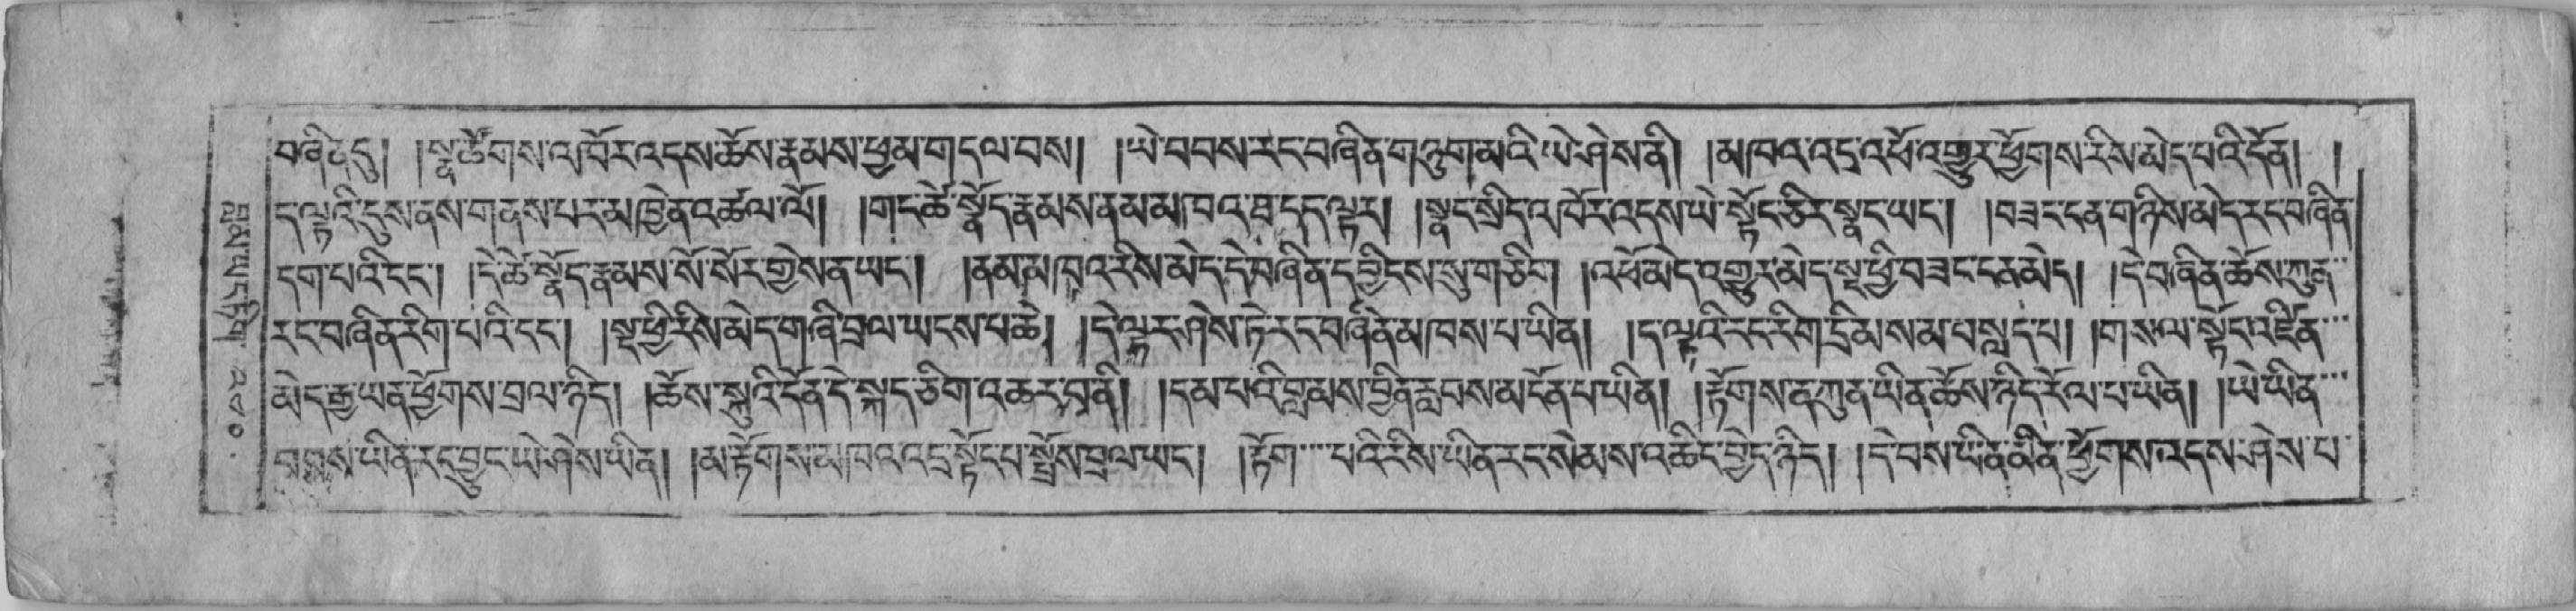 བཞིན་དུ། །སྣ་ཚོགས་འཁོར་འདས་ཆོས་རྣམས་ཕྱམ་གདལ་བས། །ཡེ་བབས་རང་བཞིན་གཉུག་མའི་ཡེ་ཤེས་ནི། །མཁའ་འདྲ་འཕོ་འགྱུར་ཕྱོགས་རིས་མེད་པའི་དོན། །
ད་ལྟའི་དུས་ནས་གནས་པར་མ་ཁྱེན་འཚལ་ལོ། །གང་ཚེ་སྣོད་རྣམས་ནམ་མཁའ་བྲ་དང་ལྟར། །སྣང་སྲིད་འཁོར་འདས་ཡེ་སྟོང་ཅིར་སྣང་ཡང་། །བཟང་ངན་གཉིས་མེད་རང་བཞིན་
དག་པའི་ངང་། །དེ་ཚེ་སྣོད་རྣམས་སོ་སོར་གྱེས་ན་ཡང་། །ནམ་མཁའ་རིས་མེད་དེ་བཞིན་དབྱིངས་སུ་གཅིག །འཕོ་མེད་འགྱུར་མེད་སྔ་ཕྱི་བཟང་ངན་མེད། །དེ་བཞིན་ཆོས་ཀུན་
རང་བཞིན་རིག་པའི་ངང་། །སྔ་ཕྱི་རིས་མེད་གཞི་བྲལ་ཡངས་པ་ཆེ། །དེ་ལྟར་ཤེས་ཏེ་རང་བཞིན་མཁས་པ་ཡིན། །ད་ལྟའི་རང་རིག་དྲི་མས་མ་བསླད་པ། །གསལ་སྟོང་འཛིན་
མེད་རྒྱ་ཡན་ཕྱོགས་བྲལ་ཉིད། །ཆོས་སྐུའི་དོན་དེ་སྐད་ཅིག་འཆར་བ་ནི། །དམ་པའི་བླ་མས་བྱིན་རླབས་མངོན་པ་ཡིན། །རྟོགས་ན་ཀུན་ཡིན་ཆོས་ཉིད་རོལ་པ་ཡིན། །ཡེ་ཡིན་
བབས་ཡིན་རང་བྱུང་ཡེ་ཤེས་ཡིན། །མ་རྟོགས་མཁའ་འདྲ་སྟོང་པ་སྤྲོས་བྲལ་ཡང་། །རྟོག་པའི་རིས་ཡིན་རང་སེམས་འཆིང་བྱེད་ཉིད། །དེ་བས་ཡིན་མིན་ཕྱོགས་འདས་ཤེས་པ་